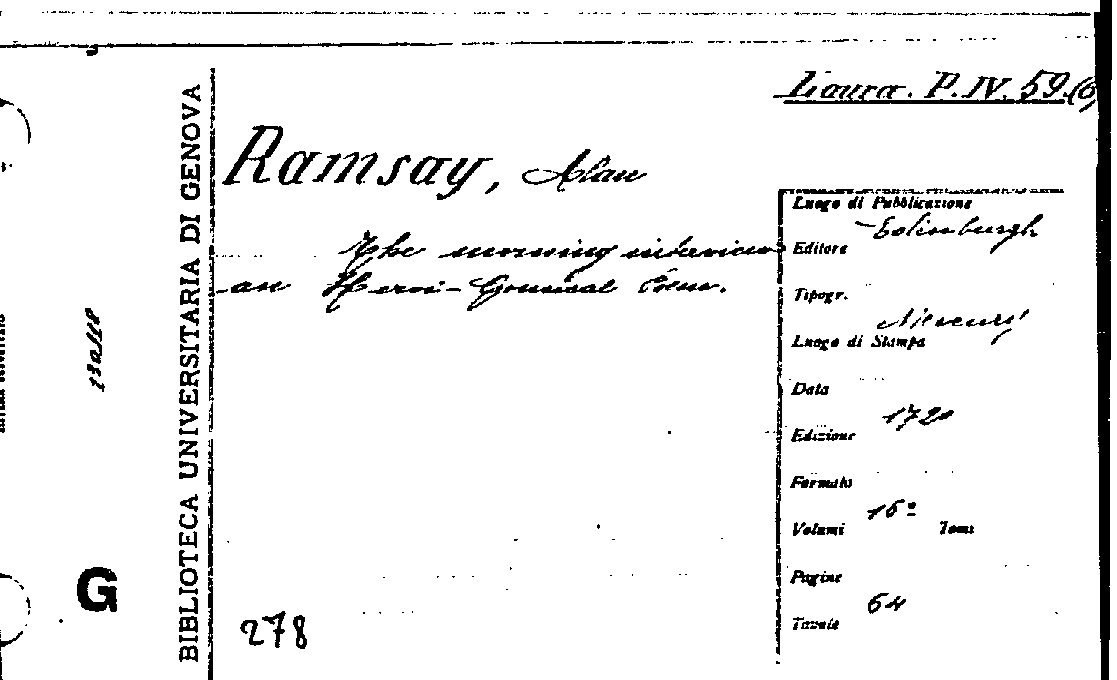 Laura. P. IV. 59.(6)
Ramsay, Alan
The morning interview
an Heroi-Comical Poem.
Luogo di Pubblicazione
Edinburgh
Editore
Tipogr.
Mercury
Luogo di Stampa
Data
1720
Edizione
Formato
16º
Volumi Tomi
Pagine
64
Tavole
278
BIBLIOTECA UNIVERSITARIA DI GENOVA
G